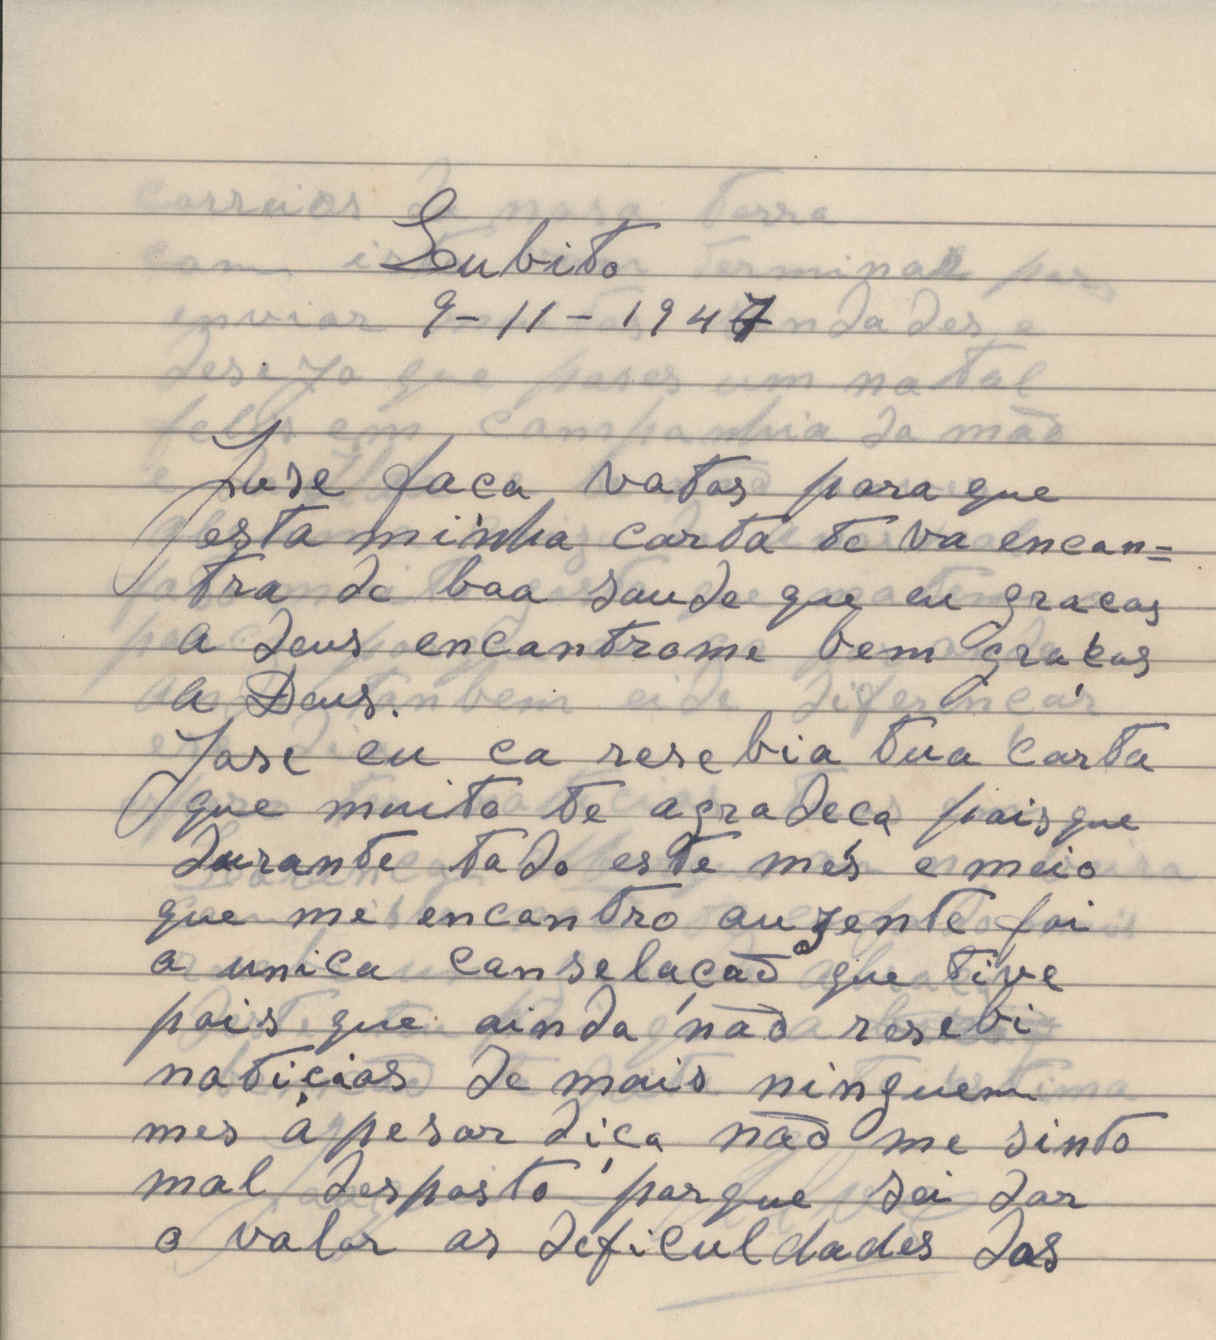 Lubito
9-11-1947
Jose faca votos para que
esta minha carta te va encon=
tra de boa saude que eu gracas
a deus encontrome bem gracas
a Deus.
Jose eu ca resebia tua carta
que muito te agradeca pois que
durante todo este mês e meio
que me encontro auzente foi
a unica conselacão que tive
pois que ainda não resebi
noticias de mais ninguem
mes á pesar diça não me sinto
mal desposto porque sei dar
o valor as deficuldades das